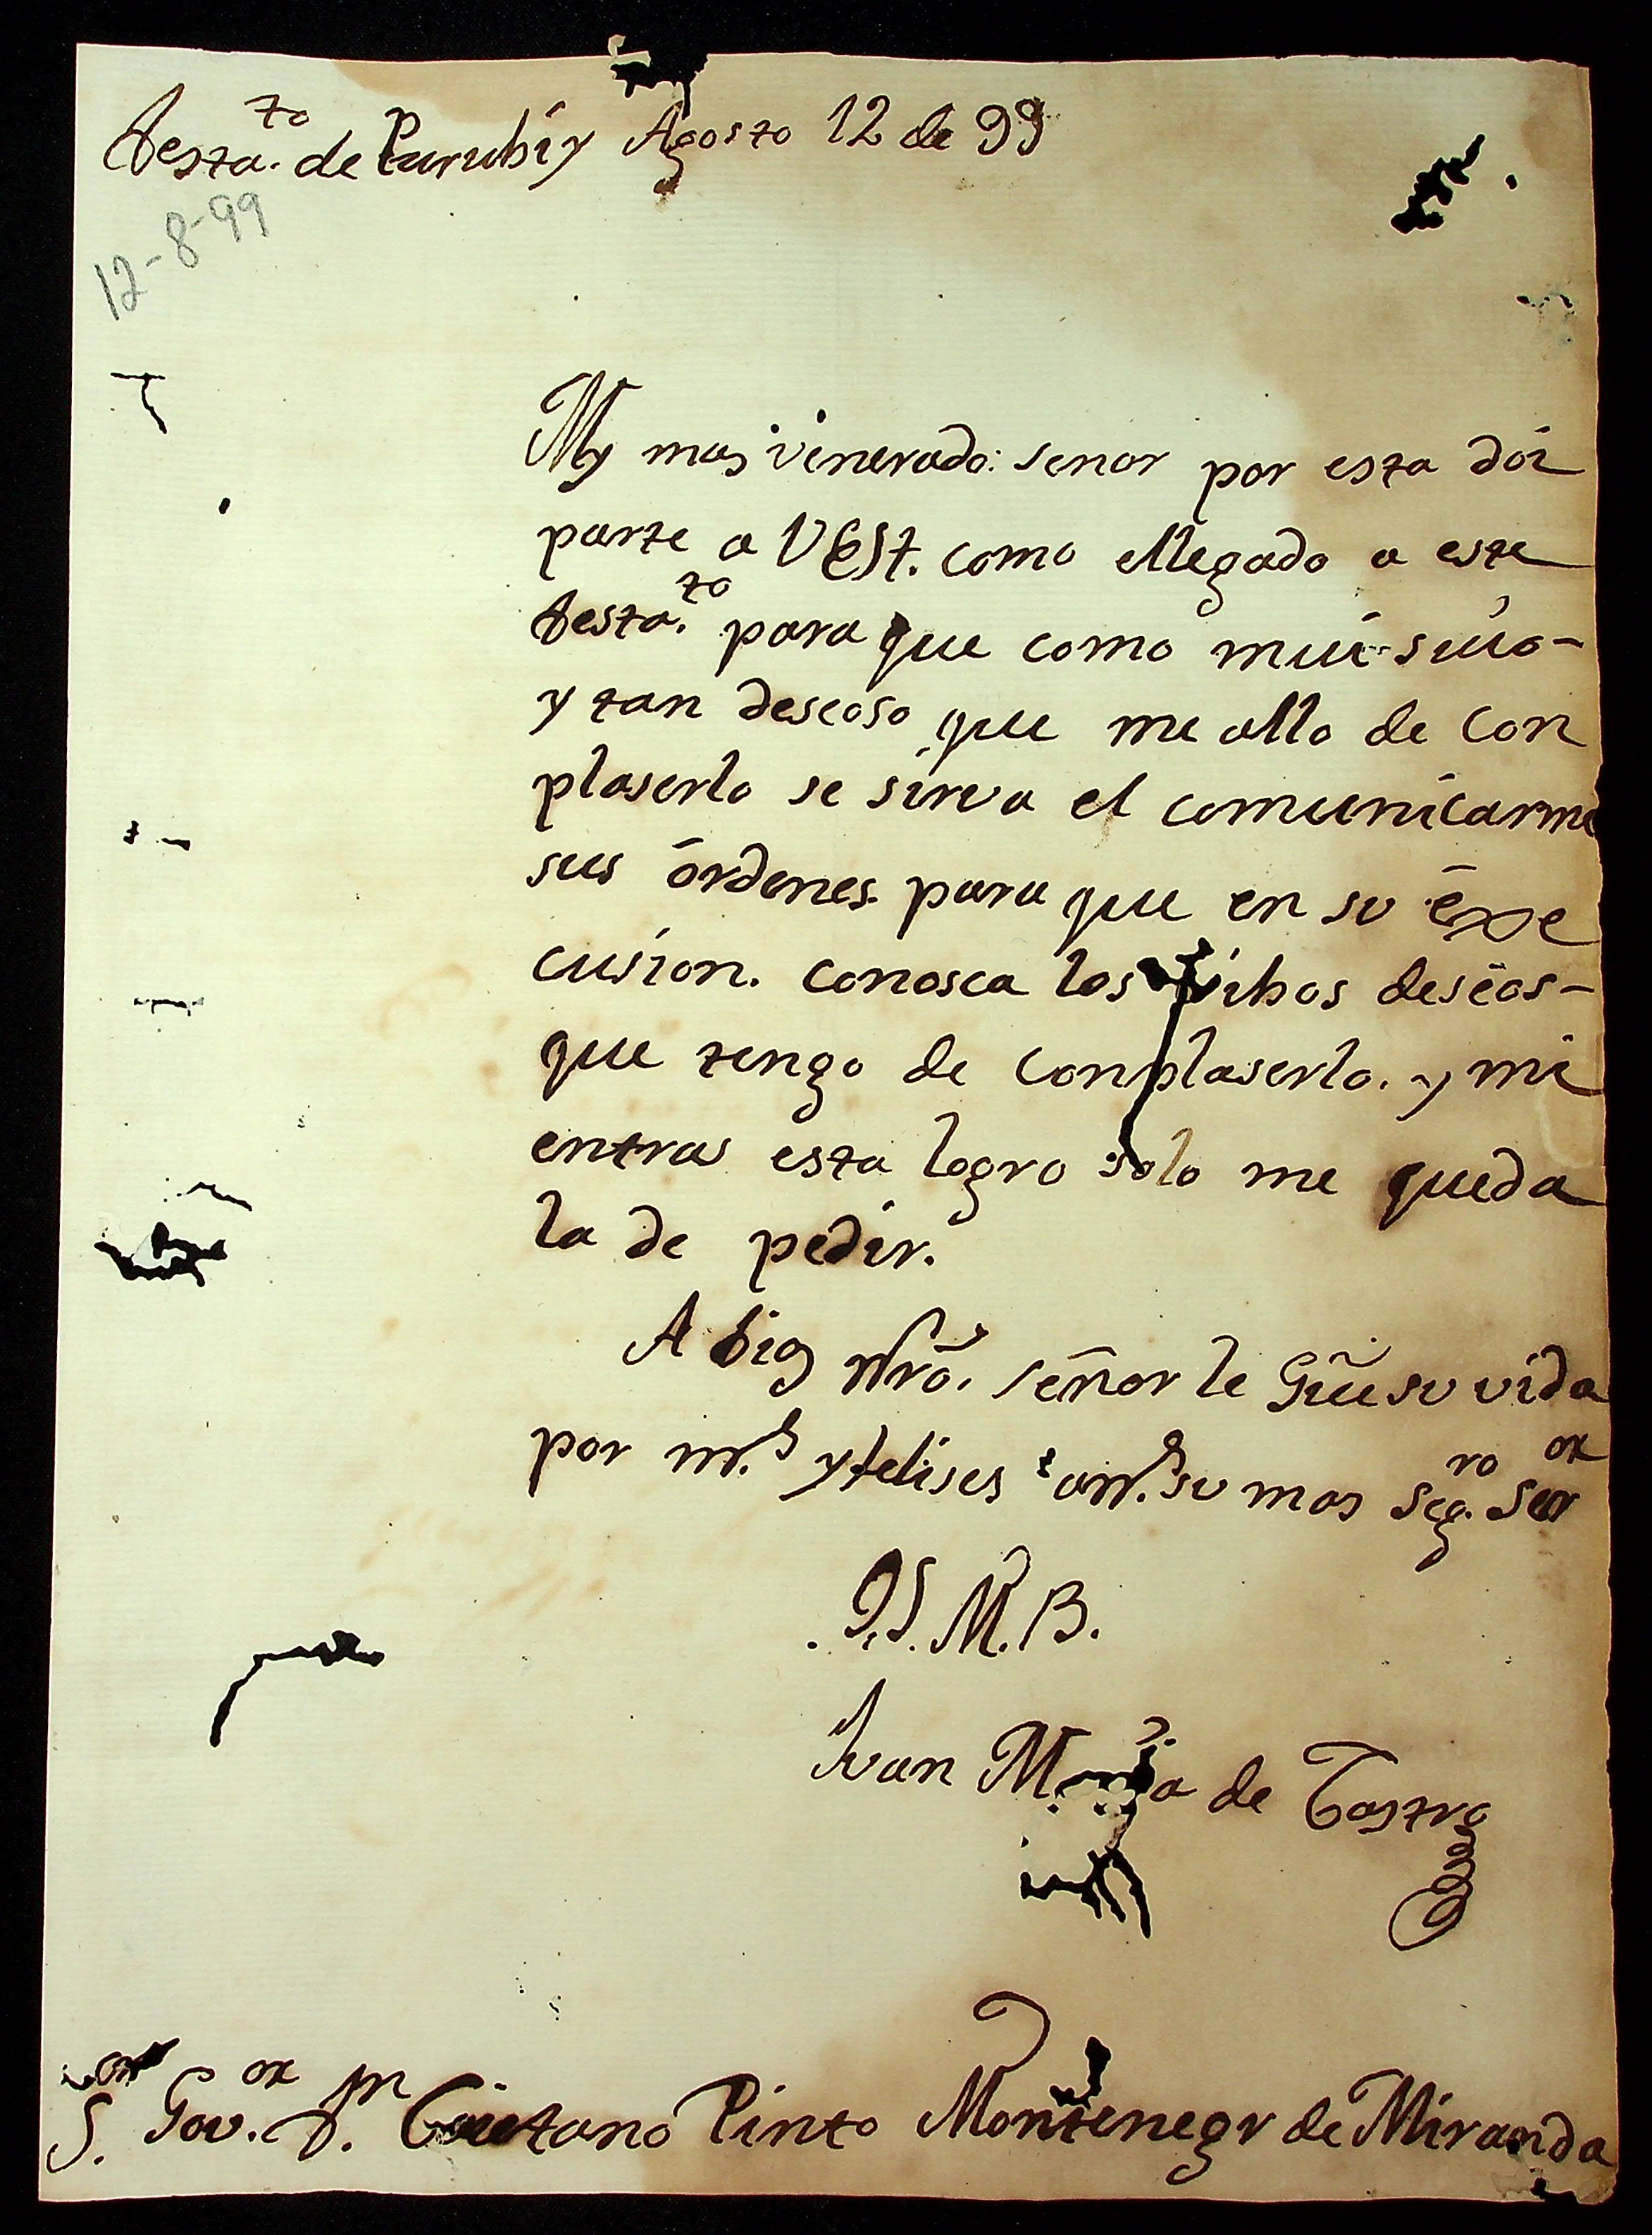 Desta.to de Purubi y Agosto 12 de 99
12-8-99
My mas venerado: senor por esta dói
parte a VESt. como ellegado a este
desta.to para que como mui súio-
y tan deseoso que me allo de Con
plaserlo se sirva el comunicarme
sus órdenes. para que en su éxse
cusion. conosca los vibos deseos-
que tengo de Conplaserlo. y mi
entras esta logro solo me queda
la de pedir.
A Dios Nrō. señor le Gūe su vida
por m.s y felises an.s su mas Seg.ro Ser.or
Q.S.M.B.
Juan Maria de Castro
S.or Gov.or D.n Caietano Pinto Montenegr de Miranda